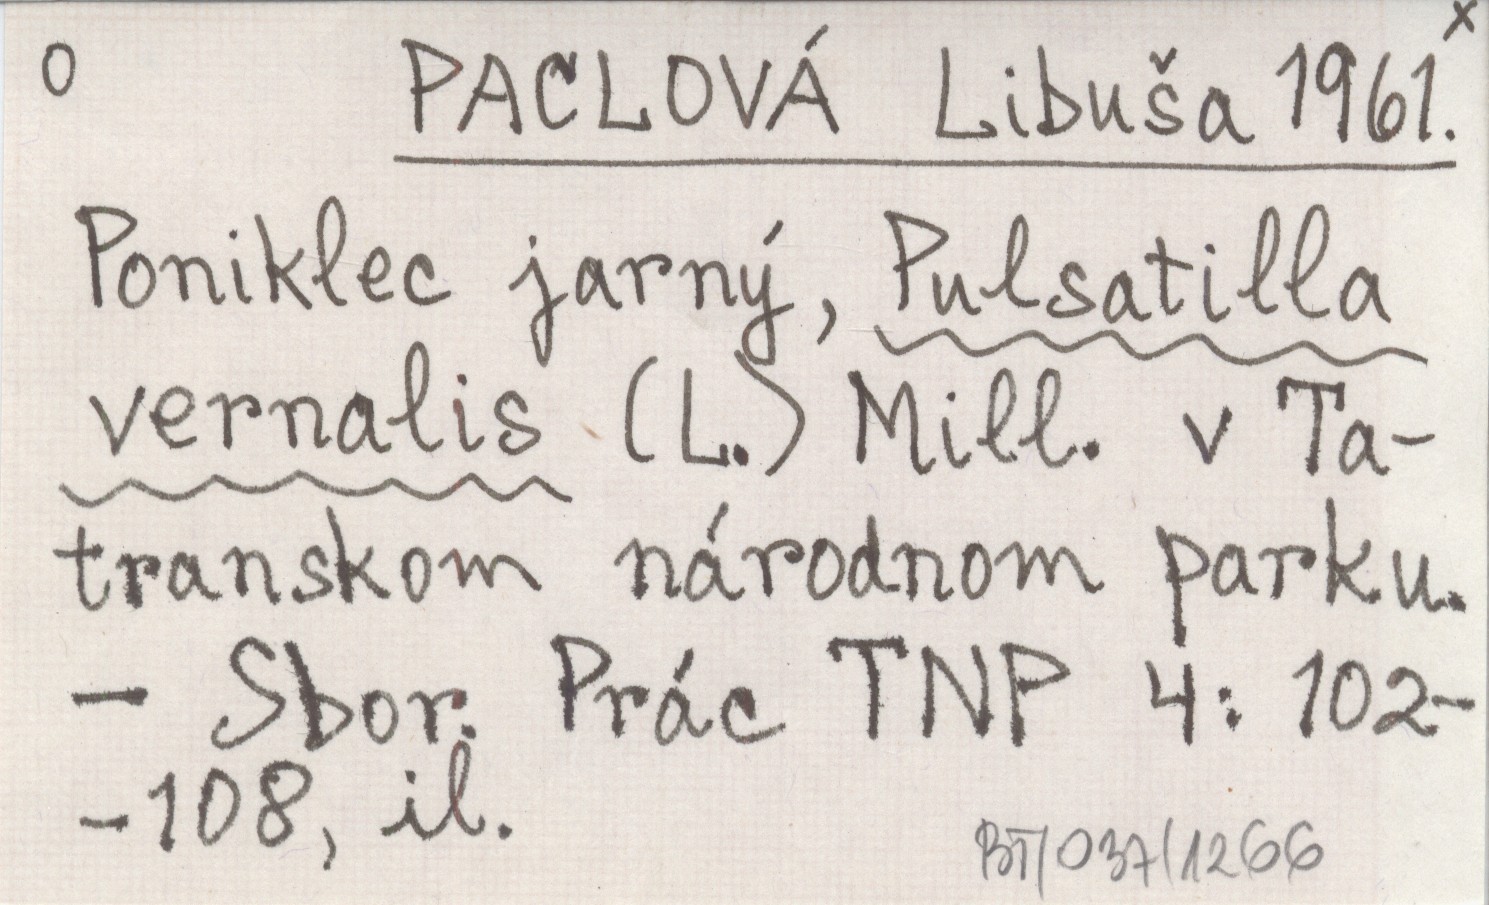 x
O PACLOVÁ Libuša 1961.
Poniklec jarný, Pulsatilla
vernalis (L.) Mill. v Ta-
transkom národnom parku.
– Sbor. Prác TNP 4: 102-
-108, il.
BT/037/1266